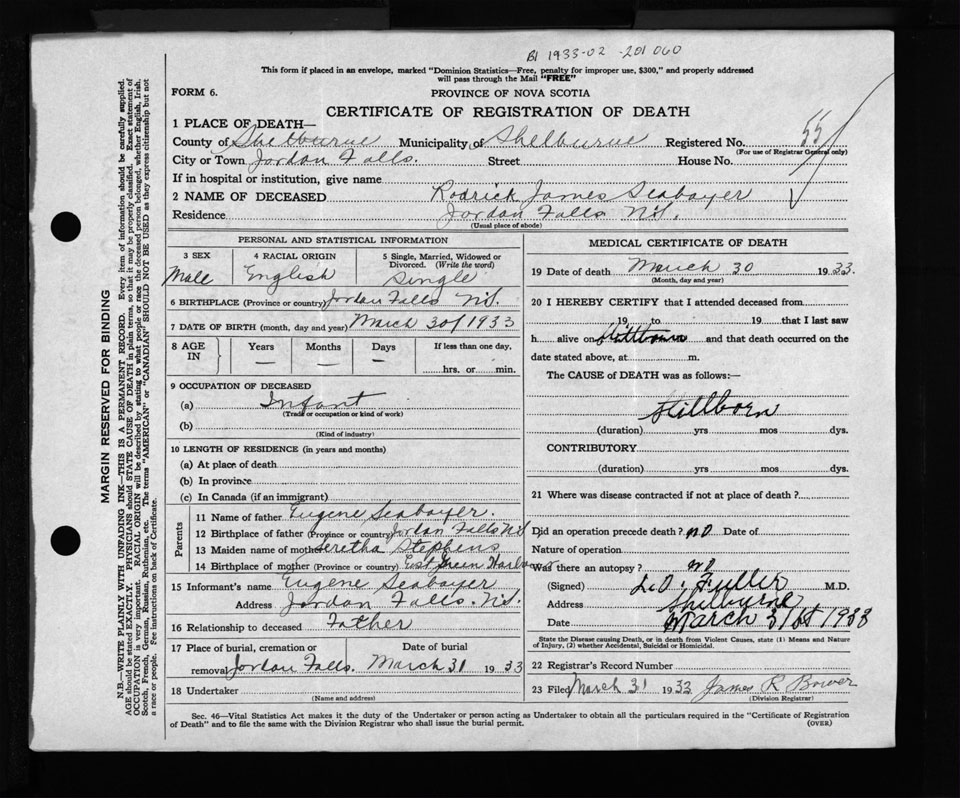 B1 1933-02-201060
This form if placed in an envelope, marked "Dominion Statistics—Free, penalty for improper use, $300," and properly addressed
will pass through the Mail "FREE"
FORM 6.
PROVINCE OF NOVA SCOTIA
CERTIFICATE OF REGISTRATION OF DEATH
1 PLACE OF DEATH—
County of Shelburne Municipality of Shelburne Registered No. 55
(For use of Registrar General only)
City or Town Jordan Falls. Street House No.
If in hospital or institution, give name
2 NAME OF DECEASED Rodrick James Seaboyer
Residence Jordan Falls N.S.
(Usual place of abode)
PERSONAL AND STATISTICAL INFORMATION
3 SEX 4 RACIAL ORIGIN 5 Single, Married, Widowed or
Divorced. (Write the word)
Male English Single
6 BIRTHPLACE (Province or country) Jordan Falls N.S.
7 DATE OF BIRTH (month, day and year) March 30/1933
8 AGE IN Years Months Days If less than one day,
— — — hrs. or min.
9 OCCUPATION OF DECEASED
(a) Infant
(Trade or occupation or kind of work)
(b)
(Kind of industry)
10 LENGTH OF RESIDENCE (in years and months)
(a) At place of death
(b) In province
(c) In Canada (if an immigrant)
Parents
11 Name of father Eugene Seaboyer.
12 Birthplace of father (Province or country) Jordan Falls N.S
13 Maiden name of mother Seretha Stephens
14 Birthplace of mother (Province or country) East Green Harbour
15 Informant's name Eugene Seaboyer
Address Jordan Falls. N.S.
16 Relationship to deceased Father
17 Place of burial, cremation or removal Jordan Falls. Date of burial March 31 1933
18 Undertaker
(Name and address)
MEDICAL CERTIFICATE OF DEATH
19 Date of death March 30 1933.
(Month, day and year)
20 I HEREBY CERTIFY that I attended deceased from
19 to 19 that I last saw
h alive on Stillborn and that death occurred on the
date stated above, at m.
The CAUSE of DEATH was as follows:—
Stillborn
(duration) yrs mos dys.
CONTRIBUTORY
(duration) yrs mos dys.
21 Where was disease contracted if not at place of death?
Did an operation precede death? no Date of
Nature of operation
Was there an autopsy? no
(Signed) L.O. Fuller M.D.
Address Shelburne
Date March 31st 1933
State the Disease causing Death, or in death from Violent Causes, state (1) Means and Nature
of Injury, (2) whether Accidental, Suicidal or Homicidal.
22 Registrar's Record Number
23 Filed March 31 1933 James R Bower
(Division Registrar)
Sec. 46—Vital Statistics Act makes it the duty of the Undertaker or person acting as Undertaker to obtain all the particulars required in the "Certificate of Registration
of Death" and to file the same with the Division Registrar who shall issue the burial permit.
(OVER)
MARGIN RESERVED FOR BINDING
N.B.—WRITE PLAINLY WITH UNFADING INK—THIS IS A PERMANENT RECORD. Every item of information should be carefully supplied.
AGE should be stated EXACTLY. PHYSICIANS should STATE CAUSE OF DEATH in plain terms, so that it may be properly classified. Exact statement of
OCCUPATION is very important. RACIAL ORIGIN will be described by stating to what people or race the deceased person belonged, whether English, Irish,
Scotch, French, German, Russian, Ruthenian, etc. The terms "AMERICAN" or "CANADIAN" SHOULD NOT BE USED as they express citizenship but not
a race or people. Fee instructions on back of Certificate.